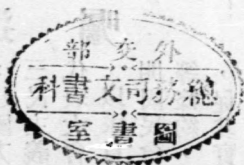 部交外
科書文司務總
室書圖